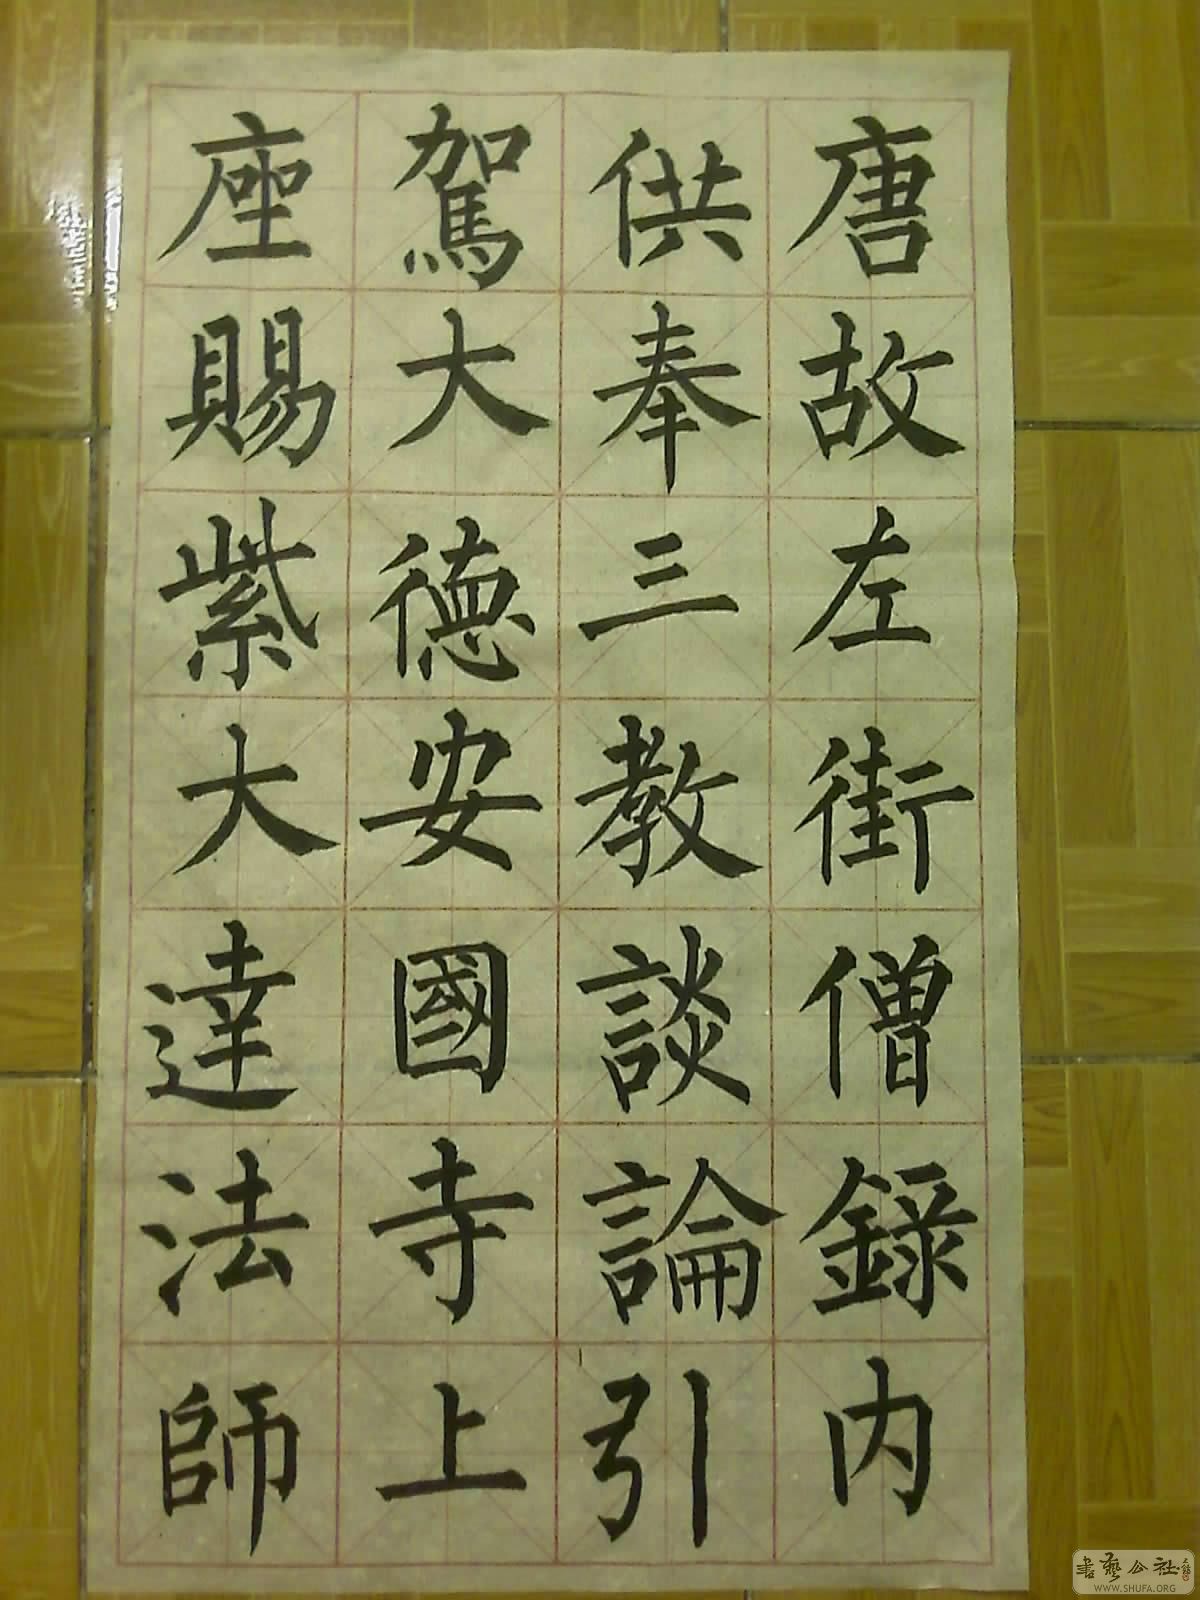 唐故左街僧録内
供奉三教談論引
駕大德安國寺上
座賜紫大達法師
書藝公社
WWW.SHUFA.ORG